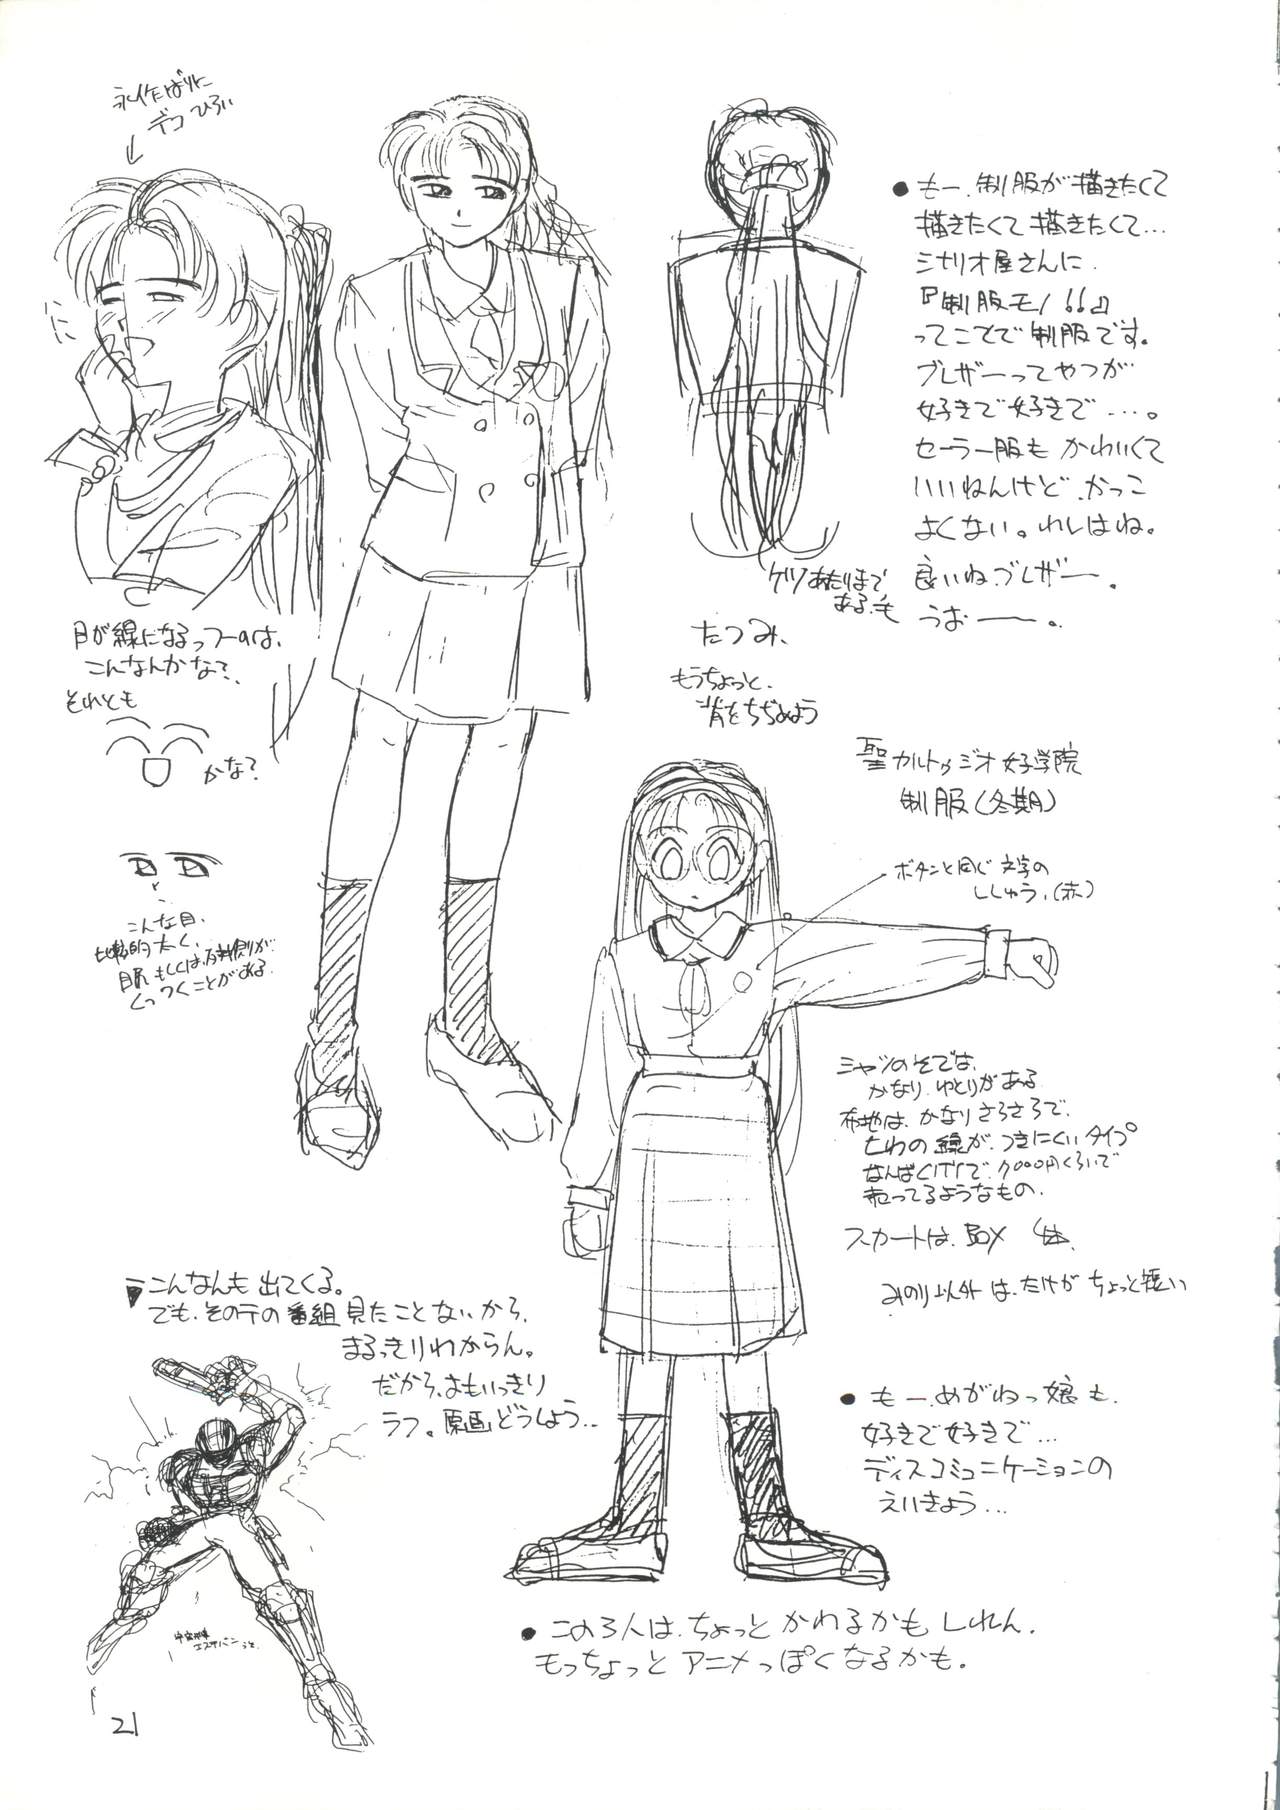 永作ばりに
デコ ひろい
● もー、制服が描きたくて
描きたくて描きたくて…
シナリオ屋さんに、
『制服モノ!!』
ってことで制服です。
ブレザーってやつが
好きで好きで…。
セーラー服もかわいくて
いいねんけど、かっこ
よくない。わしはね。
良いねブレザー。
うおーー。
ケツあたりまで
ある、も
たつみ、
もうちょっと、
背をちぢめよう
目が線になるっつーのは、
こんなんかな?、
それとも
かな?
こんな目、
比較的太く、
くっつくことがある
聖カルトゥジオ女子学院
制服(冬期)
ボタンと同じ文字の
ししゅう、(赤)
シャツのそでは、
かなり、ゆとりがある
布地は、かなりさらさらで、
しわの線が、つきにくいタイプ
なんばCITYで、7000円くらいで
売ってるようなもの、
スカートは、BOX
みのり以外は、たけがちょっと短い
こんなんも出てくる。
でも、その手の番組見たことないから、
まるっきりわからん。
だから、おもいっきり
ラフ。原画どうしよう…
● もーめがねっ娘も、
好きで好きで…
ディスコミュニケーションの
えいきょう…
● この3人は、ちょっとかわるかもしれん、
もっちょっとアニメっぽくなるかも。
21